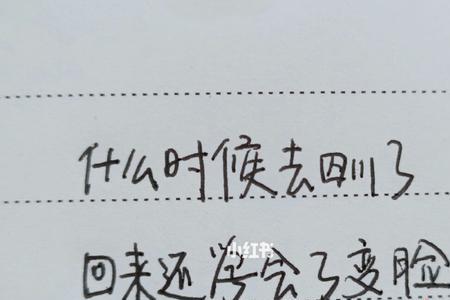 什么时候去四川了
回来还学会了变脸
小红书